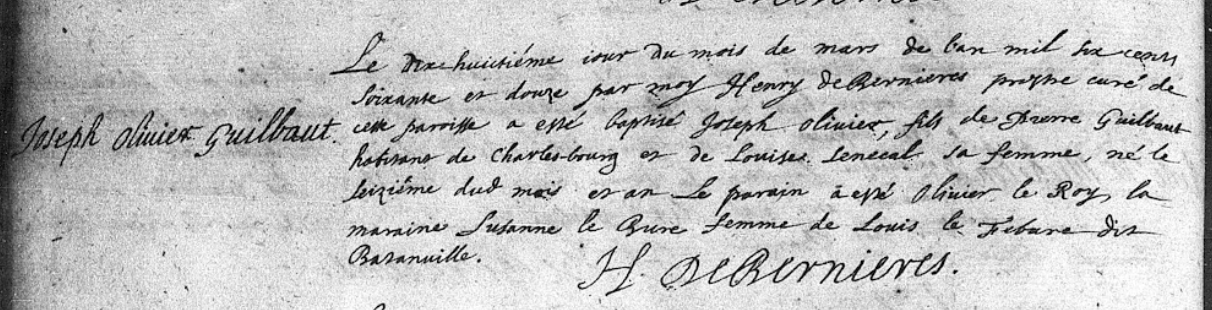 Joseph Olivier Guilbaut.
Le dix-huictiéme iour du mois de mars de l'an mil six cents
soixante et douze par moy Henry de Bernieres prestre curé de
cette paroisse a esté baptisé Joseph olivier, fils de Pierre Guilbaut
habitant de Charles-bourg et de Louise senécal sa femme, né le
seiziéme dud mois et an Le parain a esté Olivier le Roy, la
maraine Susanne le Bure femme de Louis le Febure dit
Batanville.
H. DeBernieres.